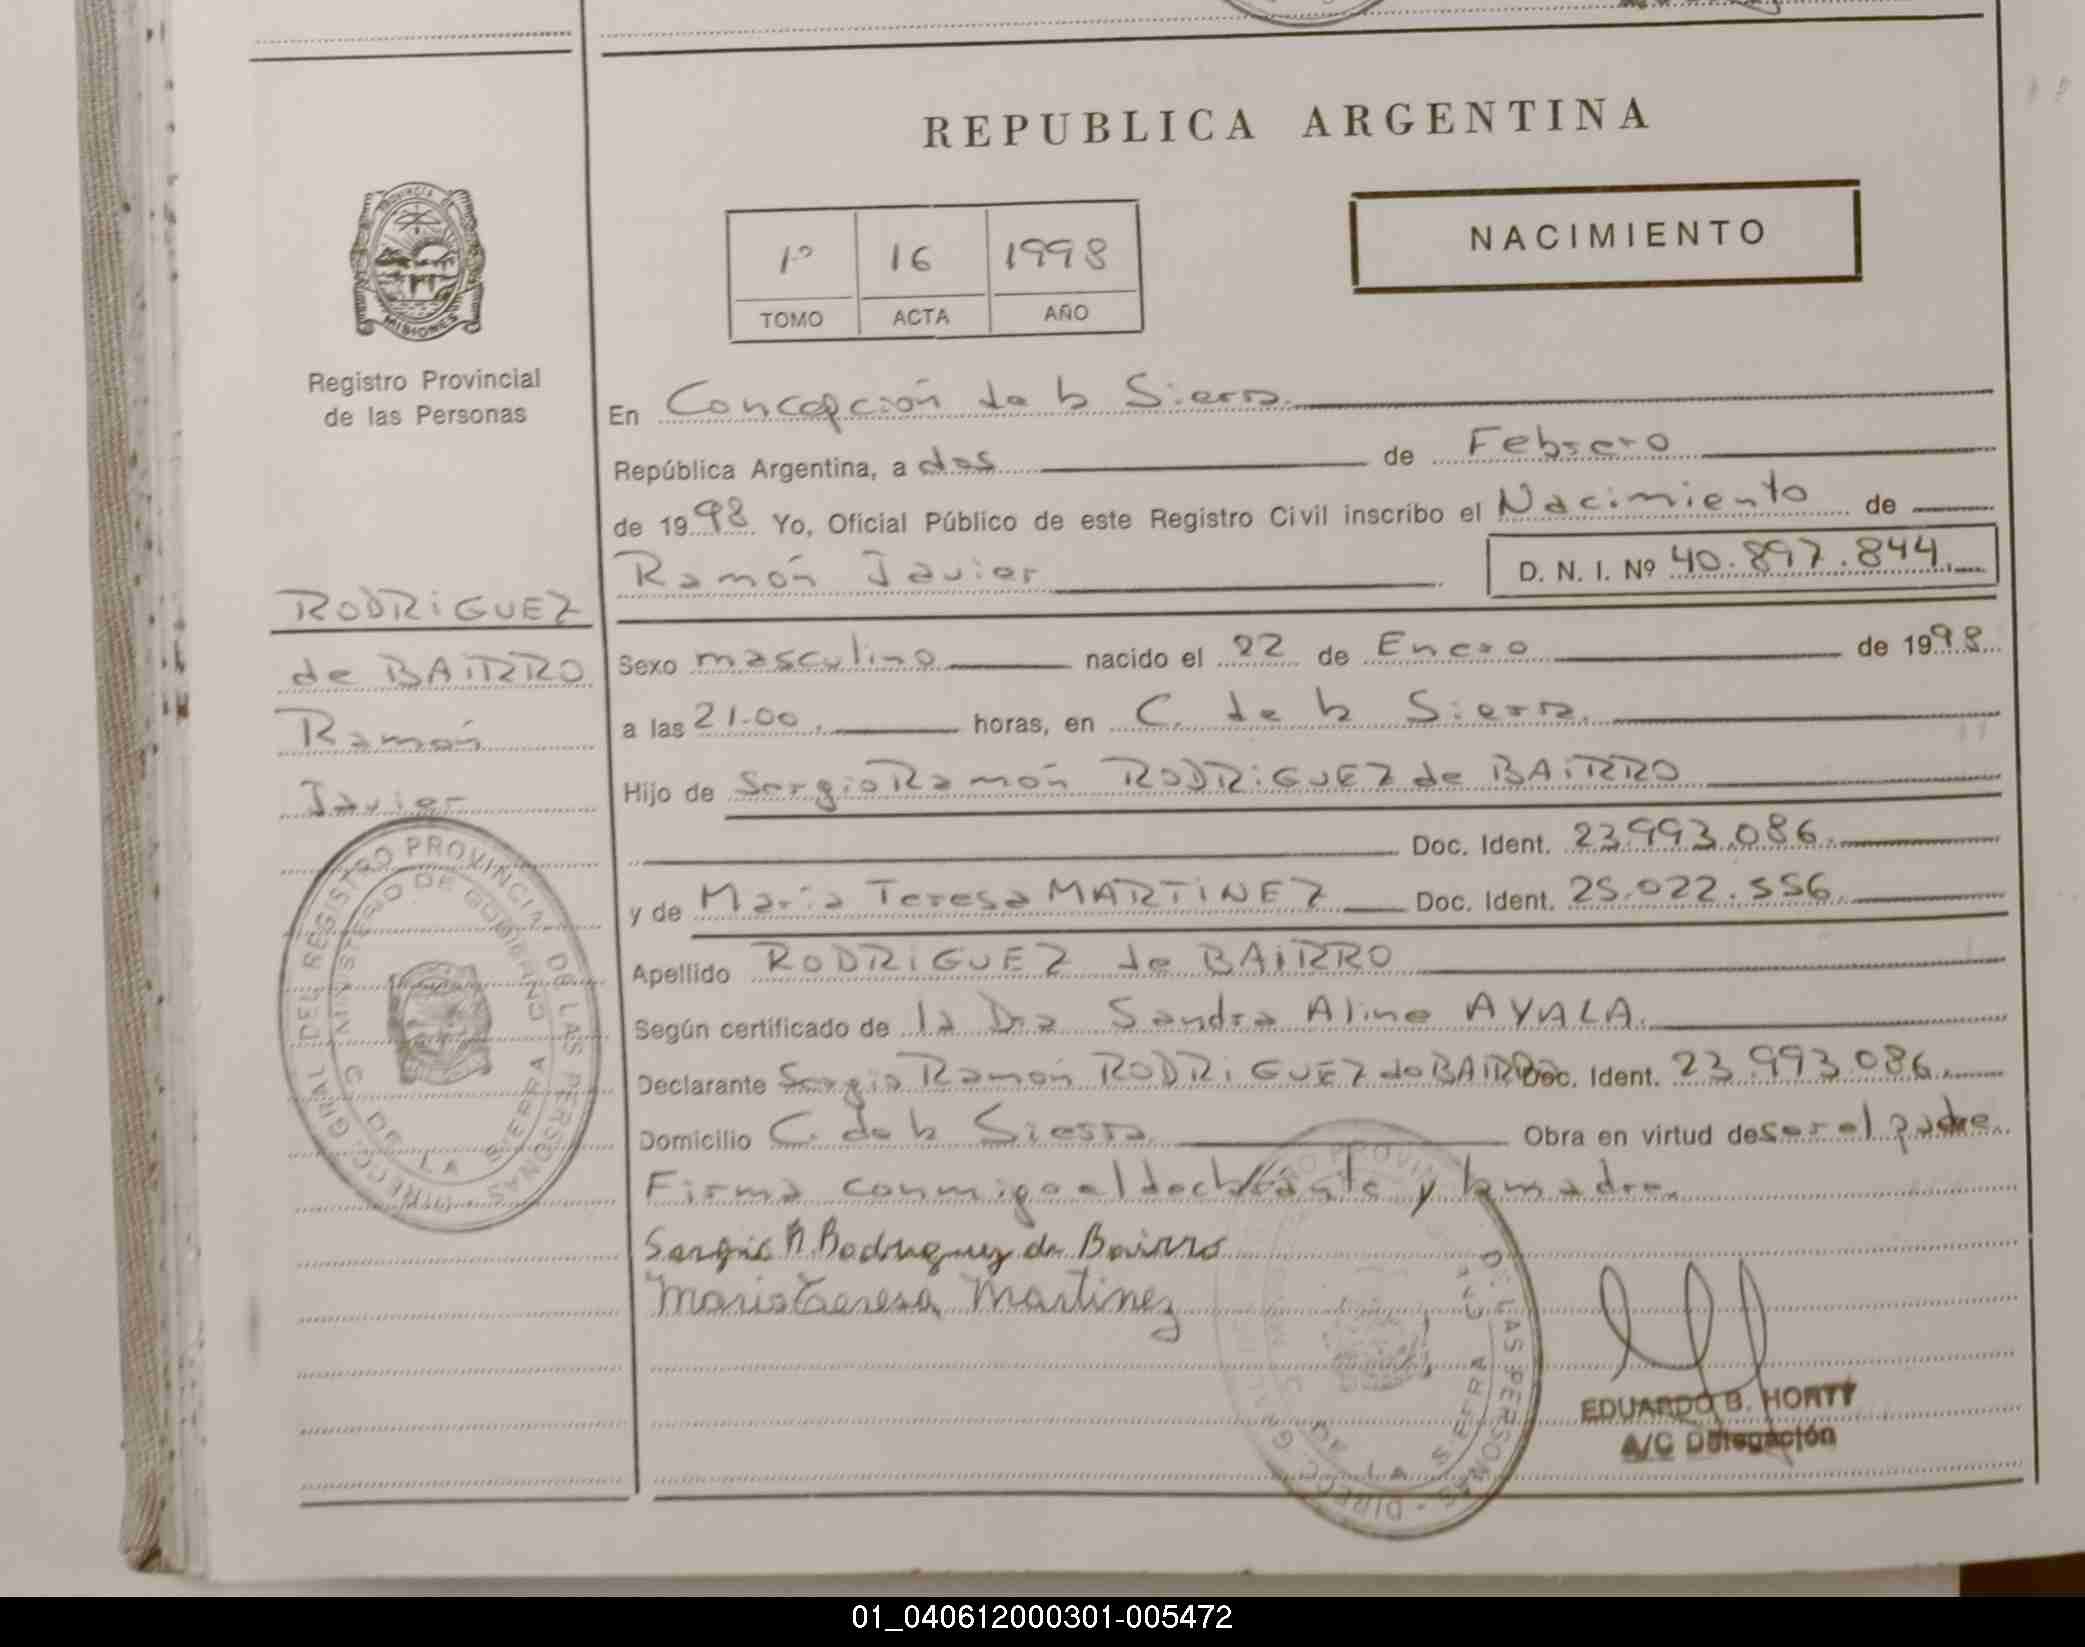 REPUBLICA ARGENTINA
PROVINCIA
MISIONES
Registro Provincial
de las Personas
1º 16 1998
TOMO ACTA AÑO
NACIMIENTO
En Concepción de la Sierra.
República Argentina, a dos de Febrero
de 1998 Yo, Oficial Público de este Registro Civil inscribo el Nacimiento de
Ramón Javier D. N. I. Nº 40.897.844.
RODRIGUEZ
de BAIRRO
Ramón
Javier
Sexo masculino nacido el 22 de Enero de 1998
a las 21.00. horas, en C. de la Sierra.
Hijo de Sergio Ramón RODRIGUEZ de BAIRRO
Doc. Ident. 23.993.086.
y de María Teresa MARTINEZ Doc. Ident. 25.022.556.
Apellido RODRIGUEZ de BAIRRO
Según certificado de la Dra Sandra Aline AYALA.
Declarante Sergio Ramón RODRIGUEZ de BAIRRO Doc. Ident. 23.993.086.
Domicilio C. de la Sierra Obra en virtud de ser el padre.
Firma conmigo el declarante y la madre.
Sergio R. Rodriguez de Bairro
Maria Teresa Martinez
DIRECC. GRAL DEL REGISTRO PROVINCIAL DE LAS PERSONAS
MINISTERIO DE GOBIERNO
C. DE LA SIERRA
DIRECC. GRAL
DE LAS PERSONAS
DE LA SIERRA
EDUARDO B. HORTT
A/C Delegación
01_040612000301-005472